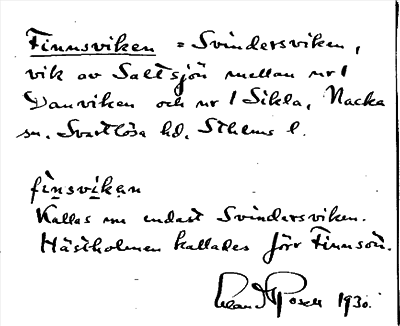 Finnsviken = Svindersviken,
vik av Saltsjön mellan nr 1
Danviken och nr 1 Sikla, Nacka
sn. Svartlösa hd. Sthlms l.
finsvikən
Kallas nu endast Svindersviken.
Hästholmen kallades förr Finnsön.
1930.